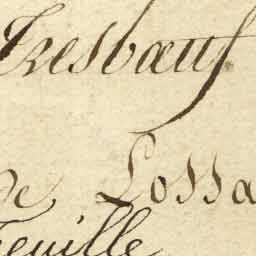 Tresbœuf
de Lossa
Feuille